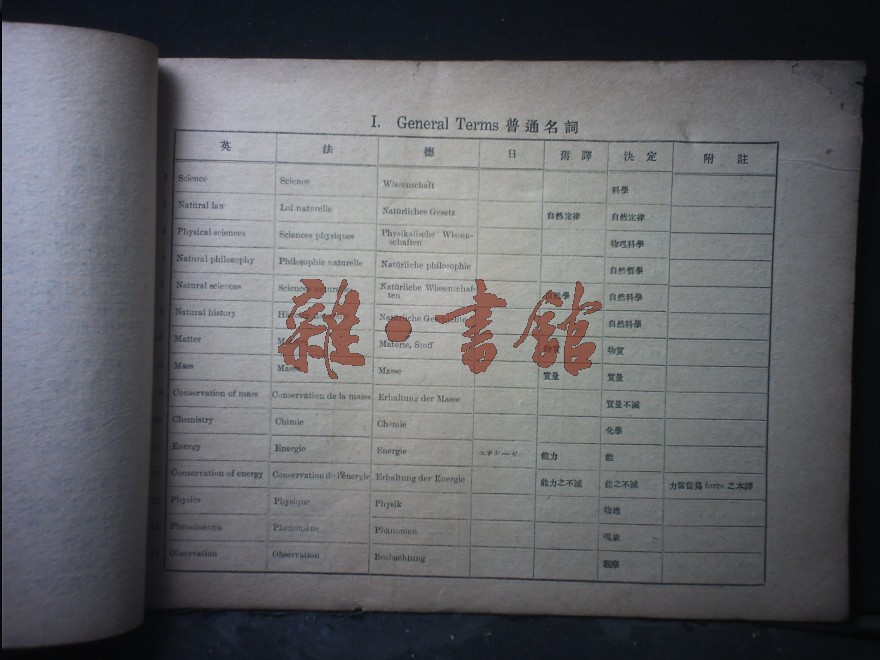 I. General Terms 普通名詞
英 法 德 日 舊譯 決定 附註
Science Science Wissenschaft 科學
Natural law Loi naturelle Natürliches Gesetz 自然定律 自然定律
Physical sciences Sciences physiques Physikalische Wissen-schaften 物理科學
Natural philosophy Philosophie naturelle Natürliche philosophie 自然哲學
Natural sciences Sciences Natürliche Wissenschaf-ten 自然科學
Natural history Natürliche 自然科學
Matter Materie, Stoff 物質 物質
Mass Masse Masse 質量 質量
Conservation of mass Conservation de la masse Erhaltung der Masse 質量不滅
Chemistry Chimie Chemie 化學
Energy Energie Energie エネルギー 能力 能
Conservation of energy Conservation de l'énergie Erhaltung der Energie 能力之不滅 能之不滅 力當留爲 force 之本譯
Physics Physique Physik 物理
Phenomenon Phénomène Phänomen 現象
Observation Observation Beobachtung 觀察
雜·書館